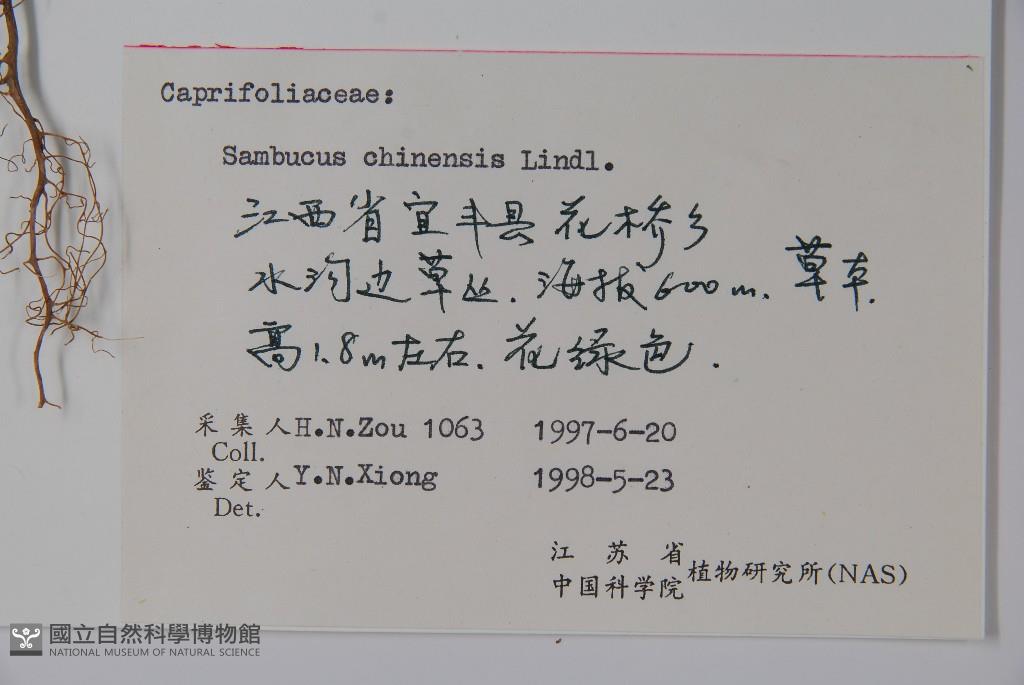 Caprifoliaceae:
Sambucus chinensis Lindl.
江西省宜丰县花桥乡
水沟边草丛.海拔600m.草本.
高1.8m左右.花绿色.
采集人H.N.Zou 1063 1997-6-20
Coll.
鉴定人Y.N.Xiong 1998-5-23
Det.
江苏省
中国科学院植物研究所(NAS)
國立自然科學博物館
NATIONAL MUSEUM OF NATURAL SCIENCE